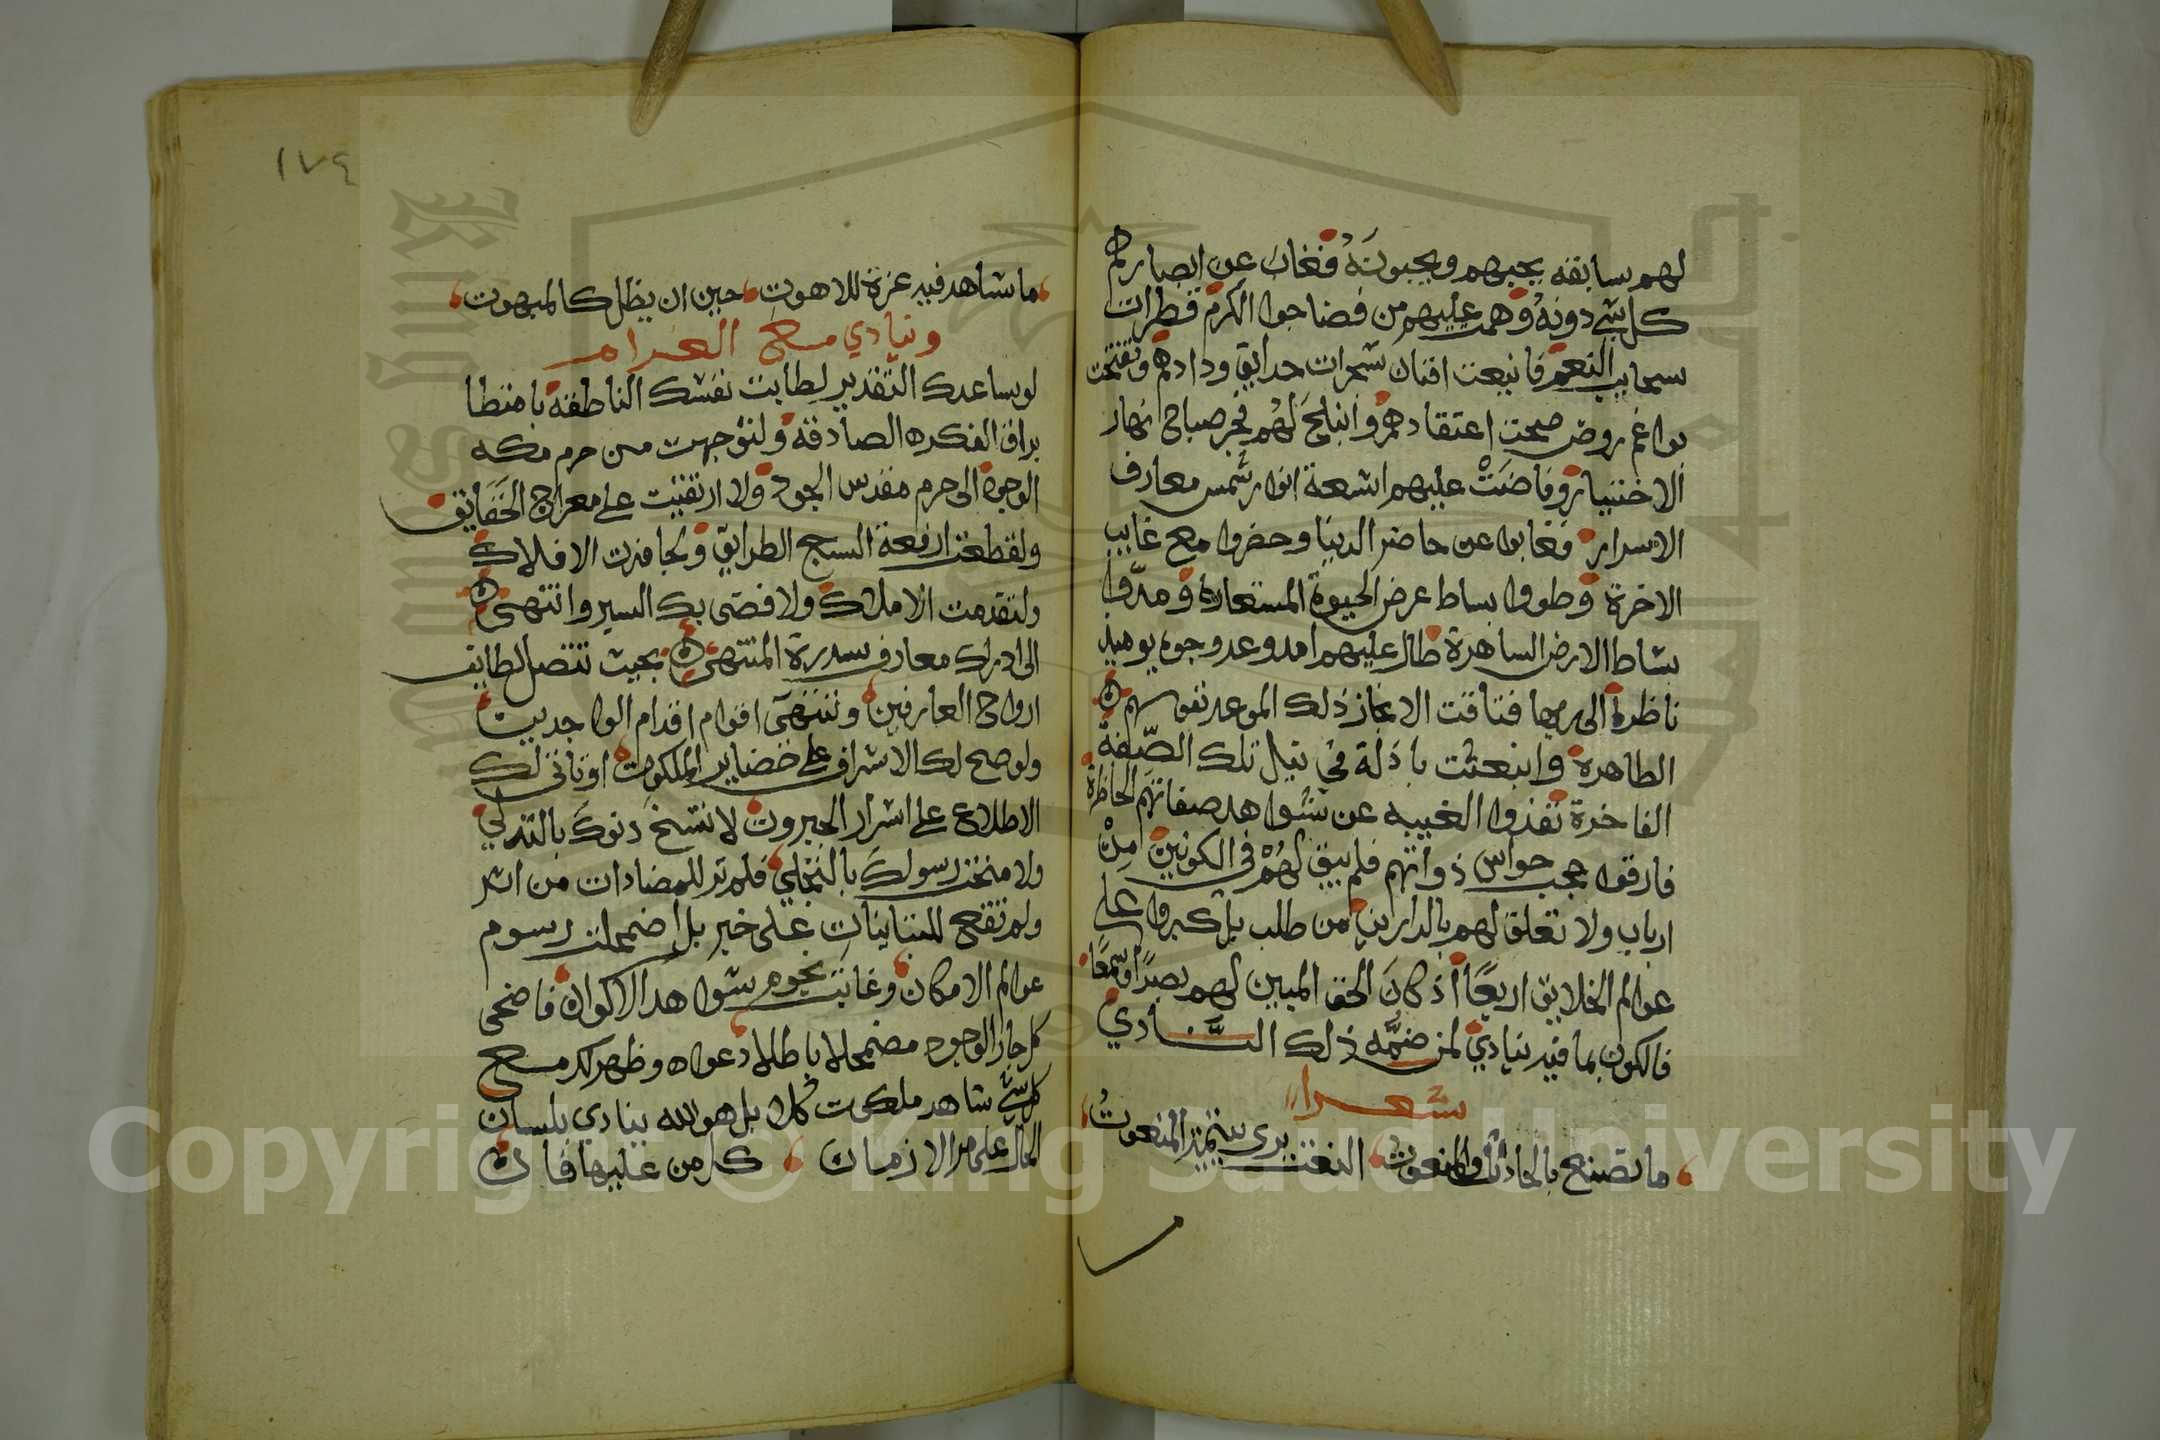 لهم سابقه يحبهم ويحبونَهُ فغاب عن ابصارهم
كل شي دونه وهمت عليهم من فضا جوا الكرم قطرات
سحايب النعم فانبعت افنان شجرات حدايق ودادهم وتفتحت
نواعم روض صحت اعتقادهم وانبلج لهم فجر صباح انهار
الاختيار وفاضت عليهم اشعة انوار شمس معارف
الاسرار فغابوا عن حاضر الدنيا وحضروا مع غايب
الاخرة وطووا بساط عرض الحيوة المستعارة ومدّوا
بساط الارض الساهرة طال عليهم امد وعد وجوه يوميذ
ناظرة الى ربها فتاقت الانجاز ذلك الموعد نفوسهم
الطاهرة وانبعثت باذلة في نيل تلك الصّفة
الفاخرة نفذوا الغيبه عن شواهد صفاتهم الحاظرة
فارقوا بحجب حواس ذواتهم فلم يبق لهم في الكونين مِنْ
ارباب ولا تعلق لهم بالدارين من طلب بل كبروا على
عوالم الخلايق اربعًا اذ كان الحق المبين لهم بصرًا وسمعًا
فالكون بما فيه ينادي لمن ضمَّه ذلك النَّادي
شعرا
ما تصنع بالحادث والمنعوت النعت يرى بتميز المنعوت
١٧٤
ما شاهد فيه عزة للاهوت حين ان يظل كالمبهوت
وينادي مع الغرام
لو ساعدك التقدير لطابت نفسك الناطقه بامتطا
براق الفكره الصادقه ولتوجهت من حرم مكه
الوجود الى حرم مقدس الجود ولارتقيت على معراج الحَقَايق
ولقطعت ارفعة السبع الطرايق ولجاوزت الافلاك
ولتقدمت الاملاك ولافضى بك السير وانتهى
الى ادراك معارف سدرة المنتهى بحيث تتصل لطايف
ارواح العارفين وتنتهي اقوام اقدام الواجدين
ولو صح لك الاشراف على خضاير الملكوت او تاتى لك
الاطلاع على اسرار الجبروت لانتسخ دنوك بالتدلي
ولامتخذ رسولك بالتجلي فلم تر للمضادات من اثر
ولم تقع للمتباينات على خبر بل اضمحلت رسوم
عوالم الامكان وغابت نجوم شواهد الاكوان فاضحى
كل جايز الوجود مضمحلا باطلا دعواه وظهر لك مع
كل شي شاهد ملكوت كلا بل هو الله ينادي بلسان
الحال على مر الازمان كل من عليها فان